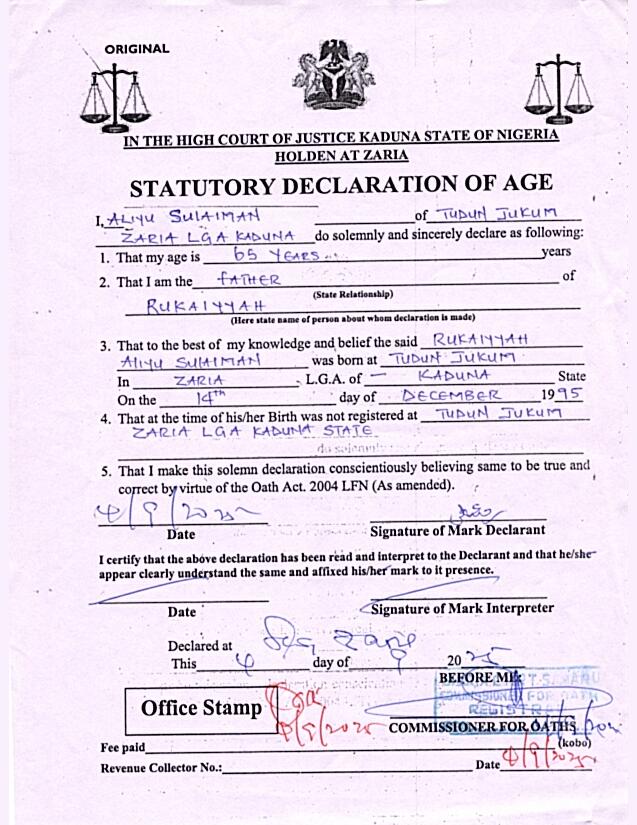 ORIGINAL
IN THE HIGH COURT OF JUSTICE KADUNA STATE OF NIGERIA
HOLDEN AT ZARIA
STATUTORY DECLARATION OF AGE
I, ALIYU SULAIMAN of TUDUN JUKUM
ZARIA LGA KADUNA do solemnly and sincerely declare as following:
1. That my age is 65 YEARS years
2. That I am the FATHER of
(State Relationship)
RUKAIYYAH
(Here state name of person about whom declaration is made)
3. That to the best of my knowledge and belief the said RUKAIYYAH
ALIYU SULAIMAN was born at TUDUN JUKUM
In ZARIA L.G.A. of KADUNA State
On the 14th day of DECEMBER 1995
4. That at the time of his/her Birth was not registered at TUDUN JUKUM
ZARIA LGA KADUNA STATE
do solemnly
5. That I make this solemn declaration conscientiously believing same to be true and
correct by virtue of the Oath Act. 2004 LFN (As amended).
4/9/2025
Date Signature of Mark Declarant
I certify that the above declaration has been read and interpret to the Declarant and that he/she
appear clearly understand the same and affixed his/her mark to it presence.
Date Signature of Mark Interpreter
Declared at Zaria
This 4 day of 9 2025
BEFORE ME
COMMISSIONER FOR OATH
REGISTRAR
Office Stamp 4/9/2025
COMMISSIONER FOR OATHS
Fee paid (kobo)
Revenue Collector No.: Date 4/9/2025